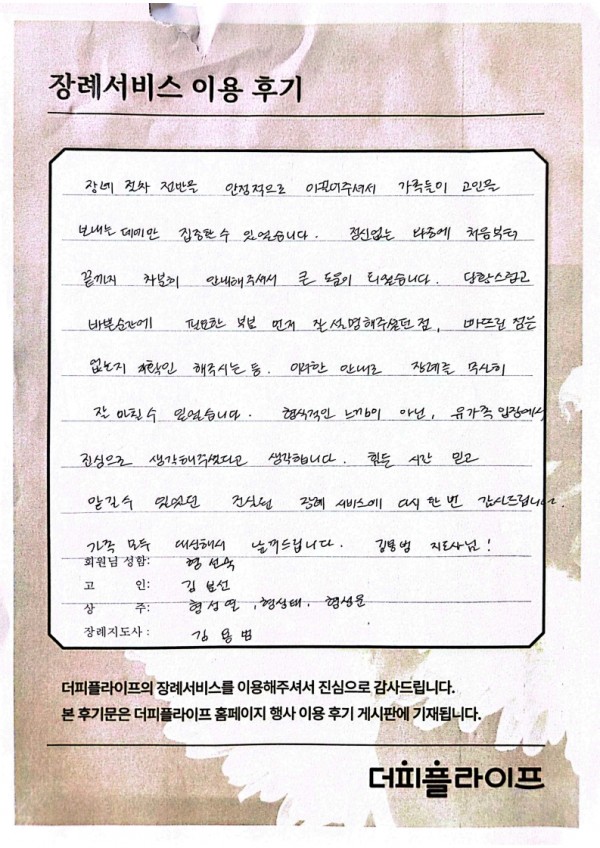 장례서비스 이용 후기
장례 절차 전반을 안정적으로 이끌어주셔서 가족들이 고인을
보내는 데에만 집중할 수 있었습니다. 정신없는 와중에 처음부터
끝까지 차분히 안내해주셔서 큰 도움이 되었습니다. 당황스럽고
바쁜순간에 필요한 부분 먼저 잘 설명해주셨던 점, 빠뜨린 점은
없는지 재확인 해주시는 등. 이러한 안내로 장례를 무사히
잘 마칠 수 있었습니다. 형식적인 느낌이 아닌, 유가족 입장에서
진심으로 생각해주셨다고 생각합니다. 힘든 시간 믿고
맡길수 있었던 진실된 장례 서비스에 다시 한 번 감사드립니다.
가족 모두 대신해서 남겨드립니다. 김용범 지도사님!
회원님 성함: 형선숙
고 인: 김 선
상 주: 형성열, 형성태, 형성운
장례지도사: 김 용 범
더피플라이프의 장례서비스를 이용해주셔서 진심으로 감사드립니다.
본 후기문은 더피플라이프 홈페이지 행사 이용 후기 게시판에 기재됩니다.
더피플라이프